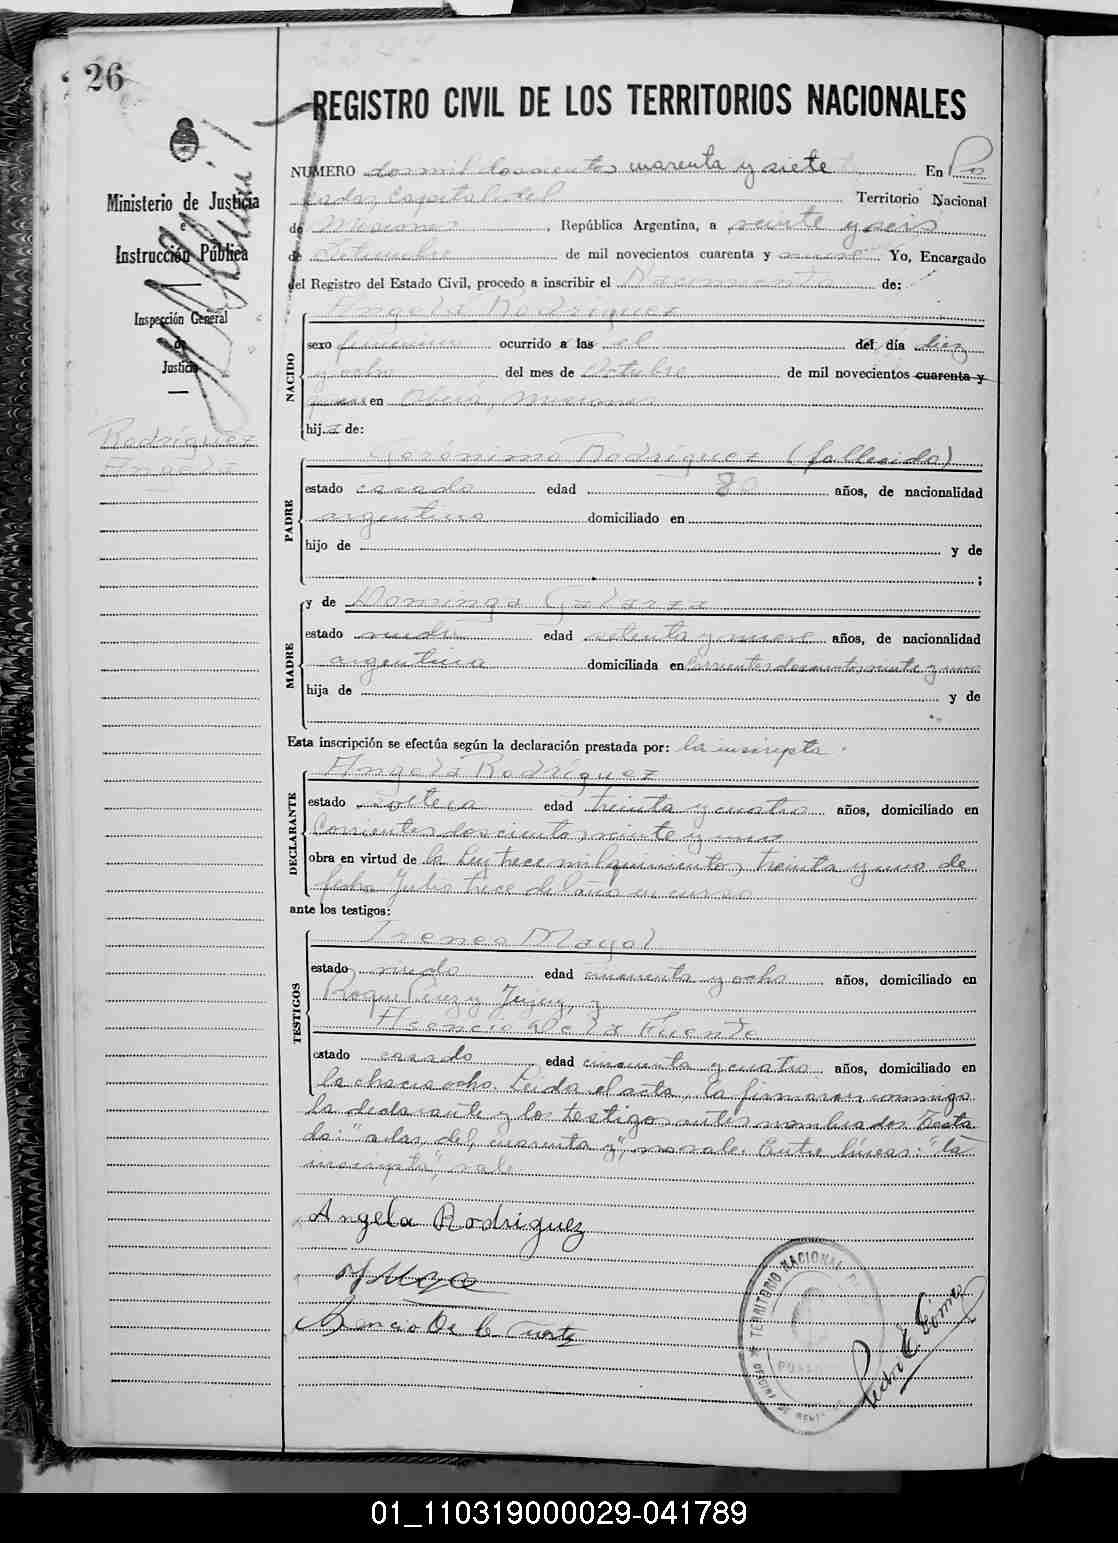 26
REGISTRO CIVIL DE LOS TERRITORIOS NACIONALES
Ministerio de Justicia
e
Instrucción Pública
Inspección General
de
Justicia
Rodríguez
Angela
NUMERO dos mil doscientos cuarenta y siete En Po
sadas, Capital del Territorio Nacional
de Misiones, República Argentina, a veinte y seis
de Setiembre de mil novecientos cuarenta y nueve Yo, Encargado
del Registro del Estado Civil, procedo a inscribir el Nacimiento de:
Angela Rodríguez
NACIDO
sexo femenino ocurrido a las el del día diez
y ocho del mes de Octubre de mil novecientos cuarenta y
en Oberá, Misiones
hija de:
PADRE
Gerónimo Rodríguez (fallecido)
estado casado edad 80 años, de nacionalidad
argentino domiciliado en
hijo de y de
;
MADRE
y de Dominga Galarza
estado viuda edad setenta y nueve años, de nacionalidad
argentina domiciliada en Corrientes doscientos veinte y uno
hija de y de
Esta inscripción se efectúa según la declaración prestada por: la inscripta
DECLARANTE
Angela Rodríguez
estado soltera edad treinta y cuatro años, domiciliado en
Corrientes doscientos veinte y uno
obra en virtud de la Ley trece mil quinientos treinta y uno de
fecha Julio trece del año en curso
ante los testigos:
TESTIGOS
Ireneo Mayol
estado viudo edad cincuenta y ocho años, domiciliado en
Roque Perez y Jujuy, y
Asencio De la Fuente
estado casado edad cincuenta y cuatro años, domiciliado en
la chacra ocho. Leida el acta, la firmaron conmigo
la declarante y los testigos antes nombrados. Testa
do: "a las, del, cuarenta y", no vale. Entre lineas: "la
inscripta", vale
Angela Rodriguez
Asencio De la Fuente
TERRITORIO NACIONAL DE
POSADAS
Pedro E. Gómez
01_110319000029-041789